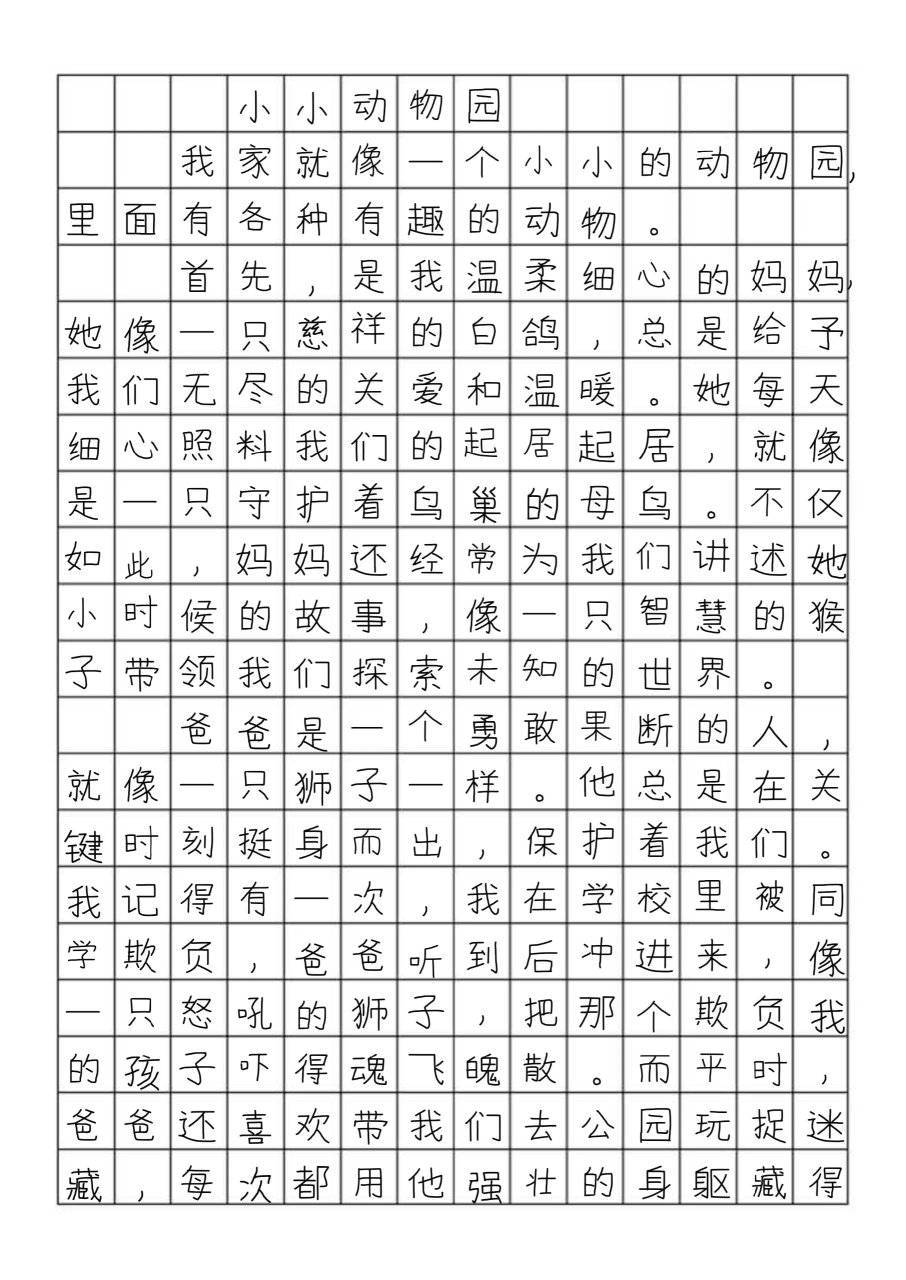 小小动物园
我家就像一个小小的动物园,
里面有各种有趣的动物。
首先,是我温柔细心的妈妈,
她像一只慈祥的白鸽,总是给予
我们无尽的关爱和温暖。她每天
细心照料我们的起居起居,就像
是一只守护着鸟巢的母鸟。不仅
如此,妈妈还经常为我们讲述她
小时候的故事,像一只智慧的猴
子带领我们探索未知的世界。
爸爸是一个勇敢果断的人,
就像一只狮子一样。他总是在关
键时刻挺身而出,保护着我们。
我记得有一次,我在学校里被同
学欺负,爸爸听到后冲进来,像
一只怒吼的狮子,把那个欺负我
的孩子吓得魂飞魄散。而平时,
爸爸还喜欢带我们去公园玩捉迷
藏,每次都用他强壮的身躯藏得